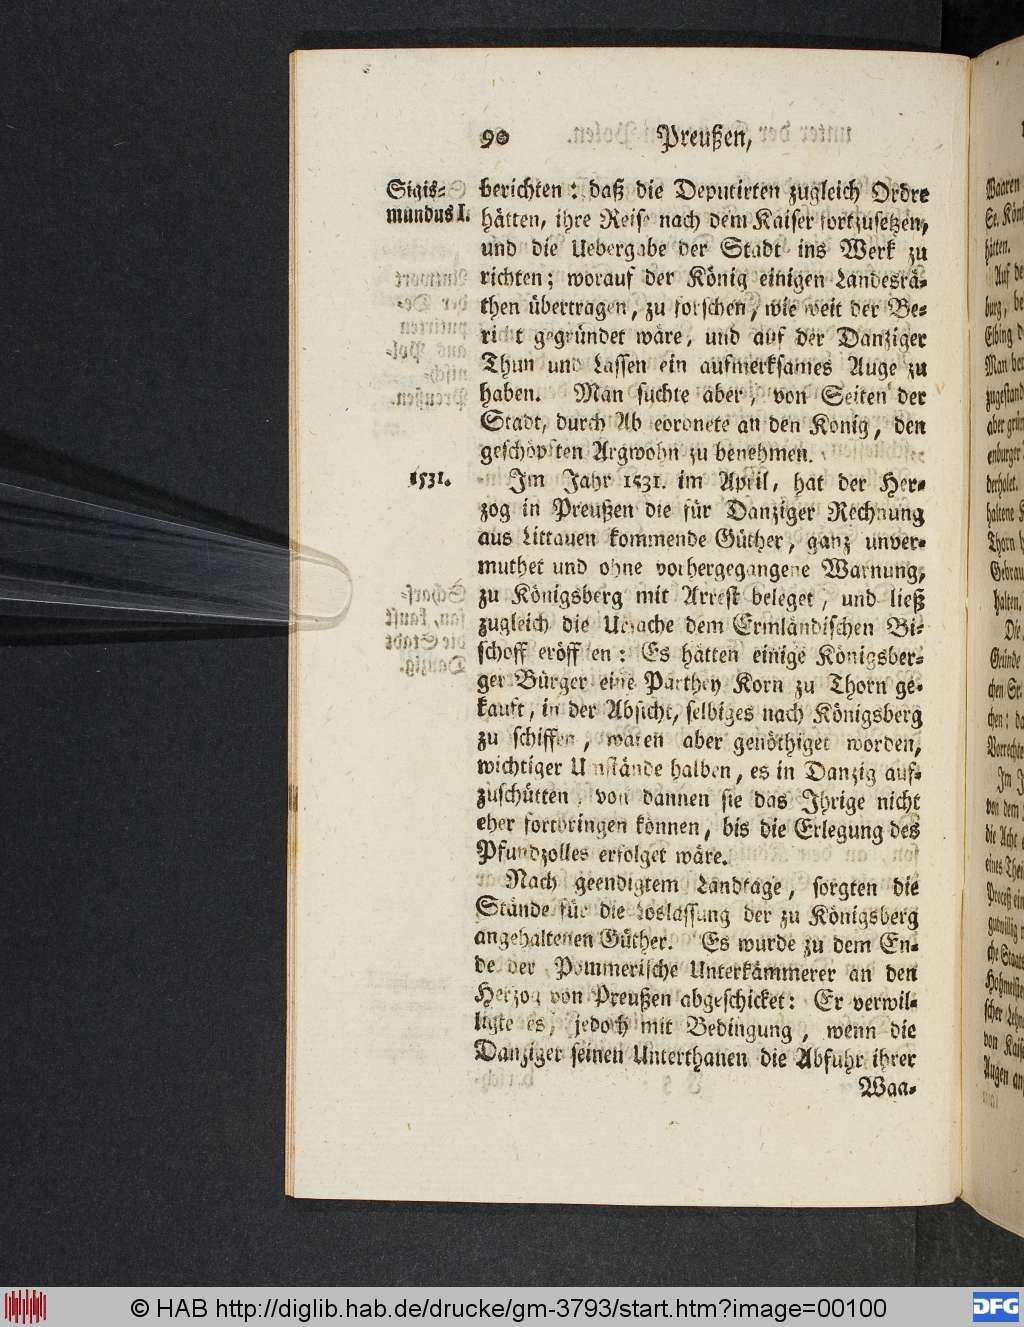 90 Preußen,
Sigis-
mundus I.
berichten: daß die Deputirten zugleich Ordre
hätten, ihre Reise nach dem Kaiser fortzusetzen,
und die Uebergabe der Stadt ins Werk zu
richten; worauf der König einigen Landesrä-
then übertragen, zu forschen, wie weit der Be-
richt gegründet wäre, und auf der Danziger
Thun und Lassen ein aufmerksames Auge zu
haben. Man suchte aber, von Seiten der
Stadt, durch Abgeordnete an den König, den
geschöpften Argwohn zu benehmen.
1531.
Im Jahr 1531. im April, hat der Her-
zog in Preußen die für Danziger Rechnung
aus Littauen kommende Güther, ganz unver-
muthet und ohne vorhergegangene Warnung,
zu Königsberg mit Arrest beleget, und ließ
zugleich die Ursache dem Ermländischen Bi-
schoff eröffnen: Es hätten einige Königsber-
ger Bürger eine Parthey Korn zu Thorn ge-
kauft, in der Absicht, selbiges nach Königsberg
zu schiffen, wären aber genöthiget worden,
wichtiger Umstände halben, es in Danzig auf-
zuschütten, von dannen sie das Ihrige nicht
eher fortbringen können, bis die Erlegung des
Pfundzolles erfolget wäre.
Nach geendigtem Landtage, sorgten die
Stände für die Loslassung der zu Königsberg
angehaltenen Güther. Es wurde zu dem En-
de der Pommerische Unterkämmerer an den
Herzog von Preußen abgeschicket: Er verwil-
ligte es, jedoch mit Bedingung, wenn die
Danziger seinen Unterthanen die Abfuhr ihrer
Waa-
Waaren
hätten.
Auf
Man
Thorn
halten,
Die
Gründe
Im
von dem
die Acht
Proceß
von
Augen
© HAB http://diglib.hab.de/drucke/gm-3793/start.htm?image=00100
DFG